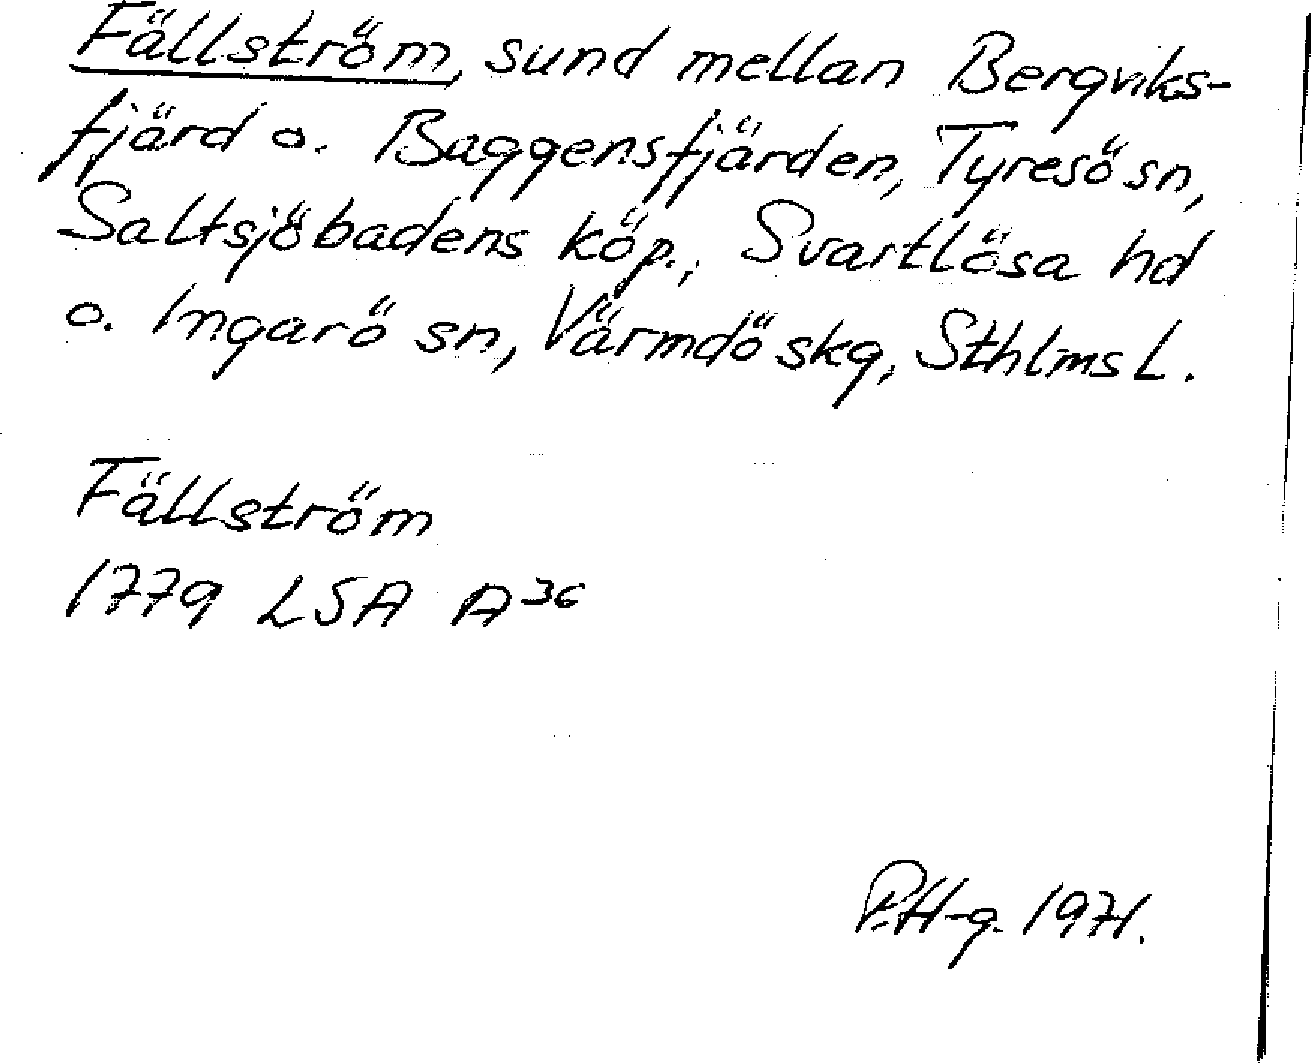 Fällström, sund mellan Bergviks-
fjärd o. Baggensfjärden, Tyresö sn,
Saltsjöbadens köp., Svartlösa hd
o. Ingarö sn, Värmdö skg, Sthlms L.
Fällström
1779 LSA A³⁶
P.H-g. 1971.